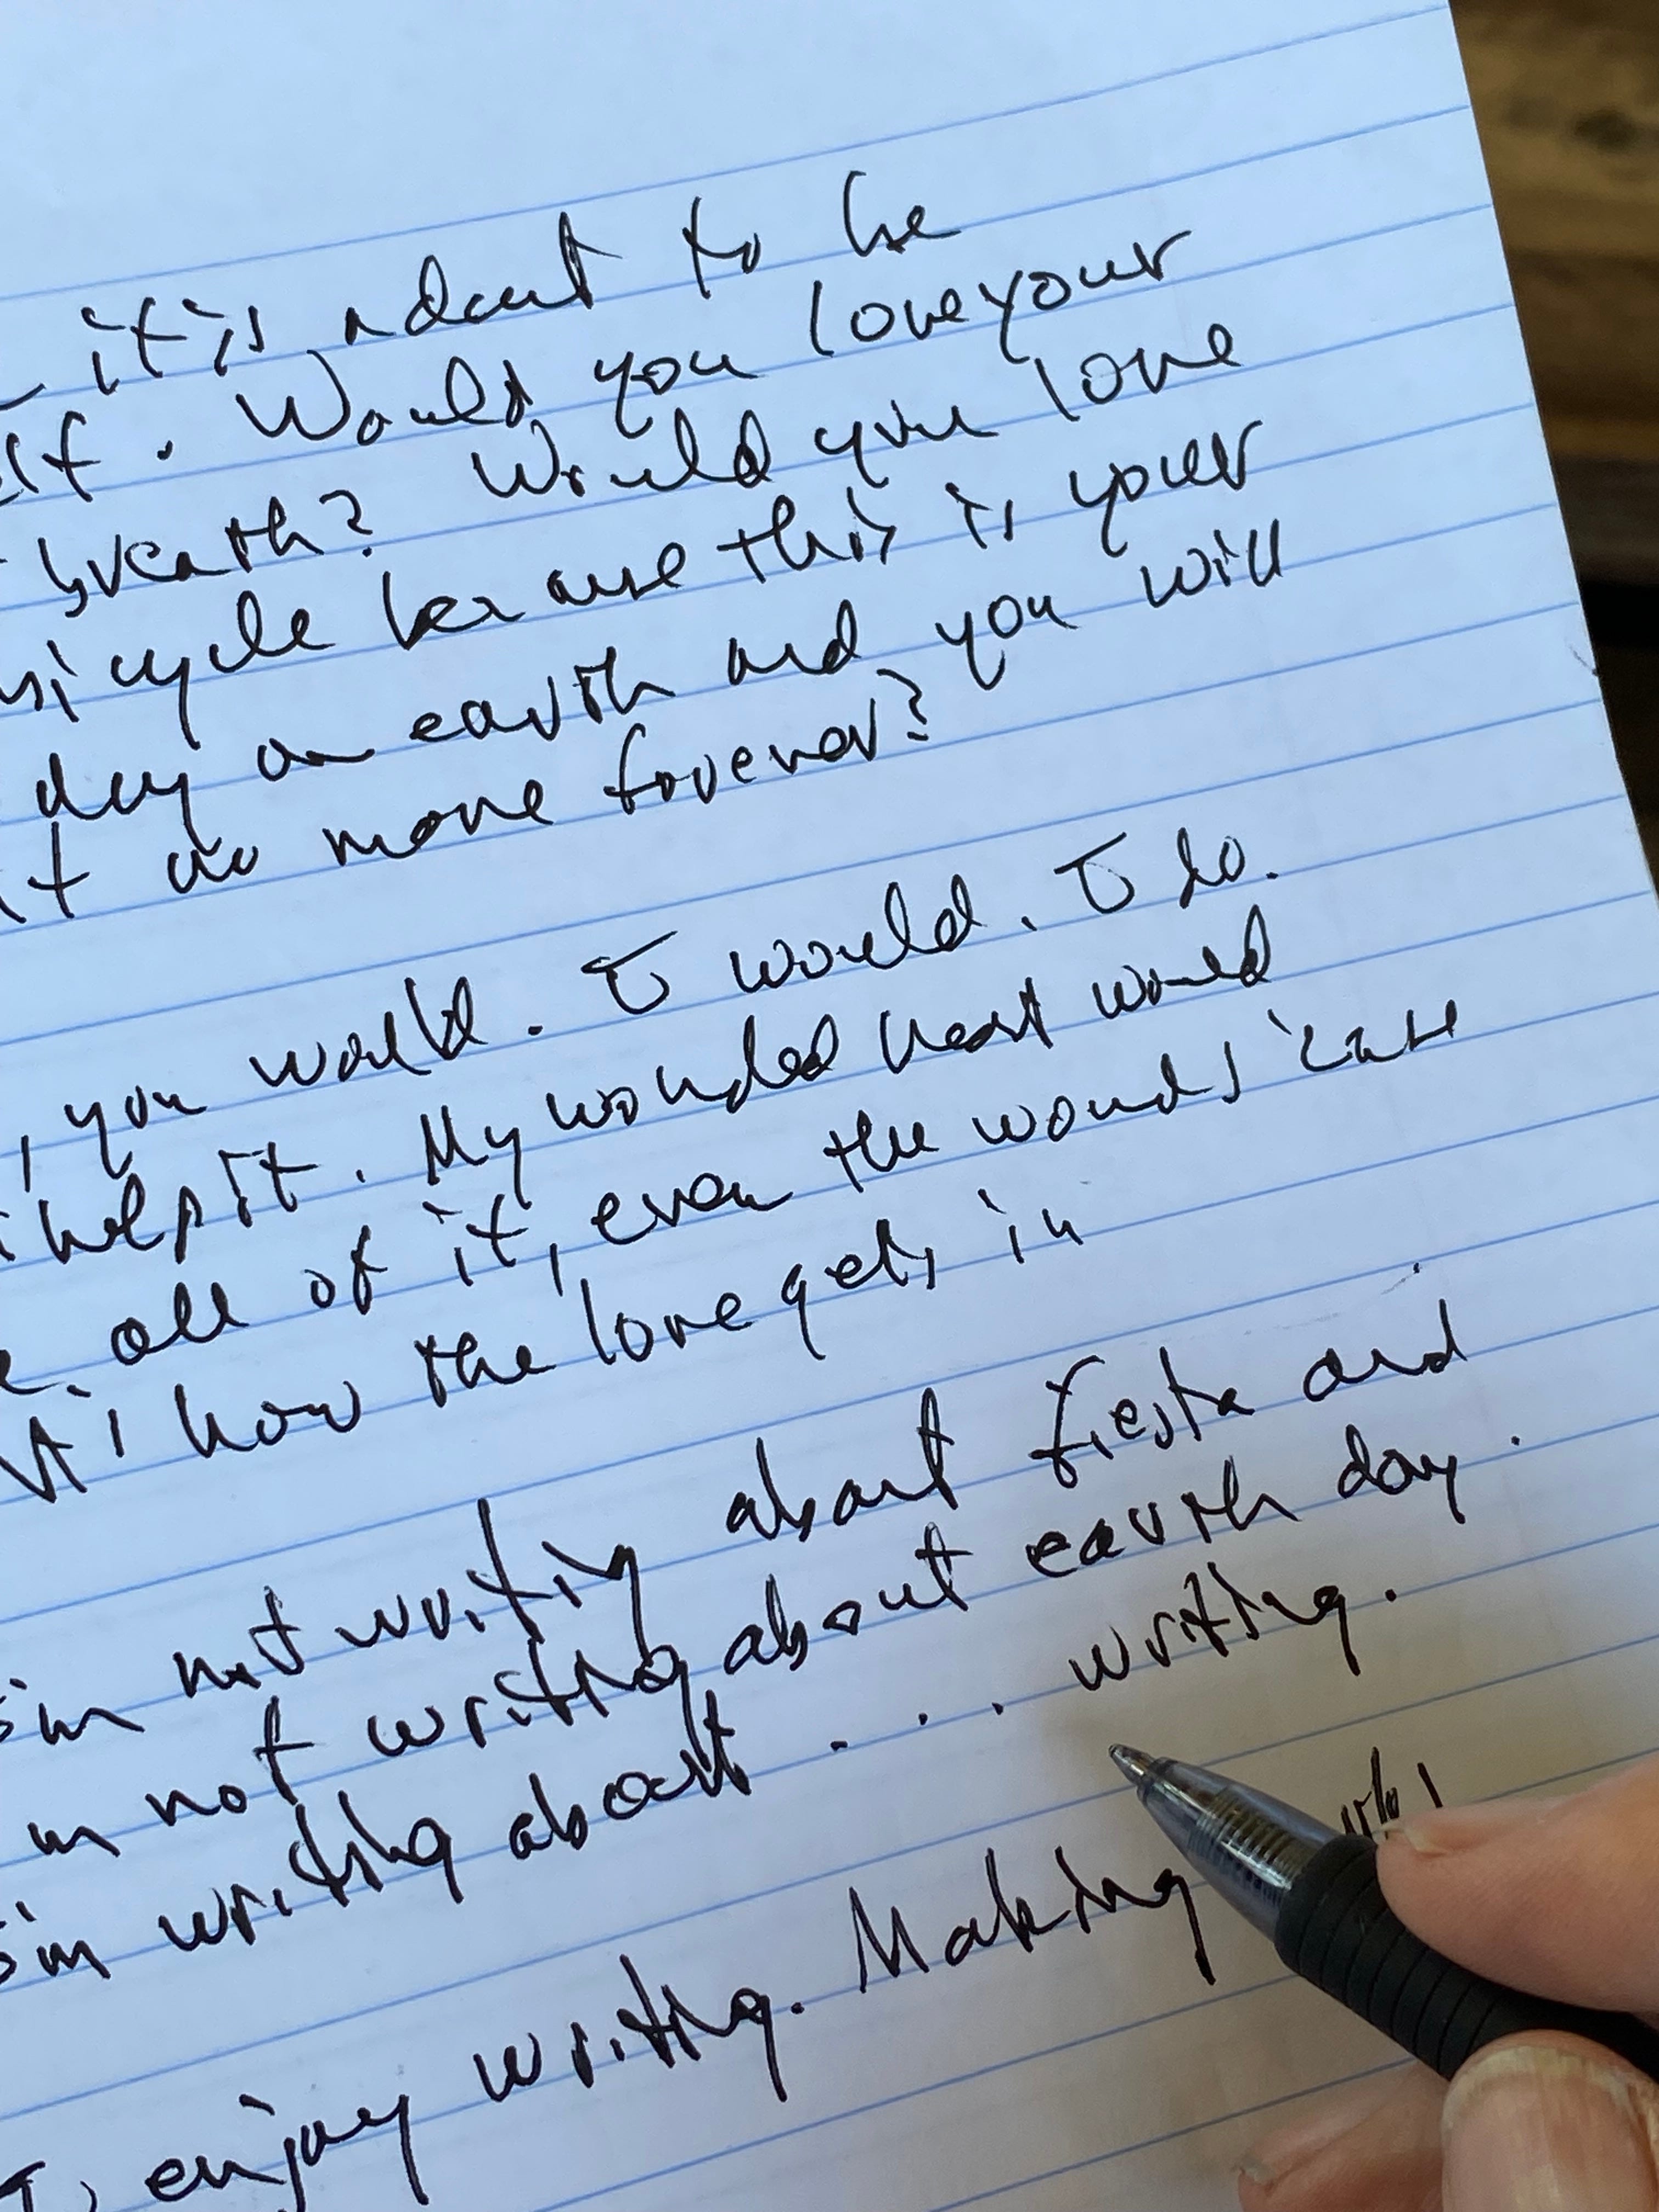 it is adout to be
elf. Would you love your
breath? Would you love
sicycle because this is your
day on earth and you will
it no more forever?
, you would. I would. I do.
help it. My wonded heart would
all of it, even the wounds
how the love gets in
I'm not writing about fiesta and
I'm not writing about earth day.
I'm writing about .... writing.
I enjoy writing. Making